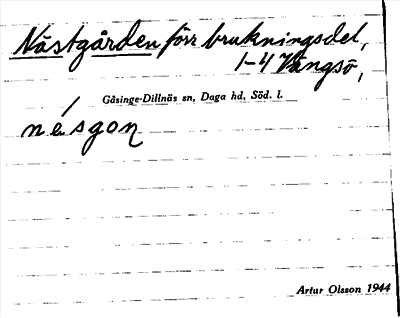 Nästgården förr brukningsdel,
1-4 Vängsö,
Gåsinge-Dillnäs sn, Daga hd, Söd. l.
nésgon
Artur Olsson 1944